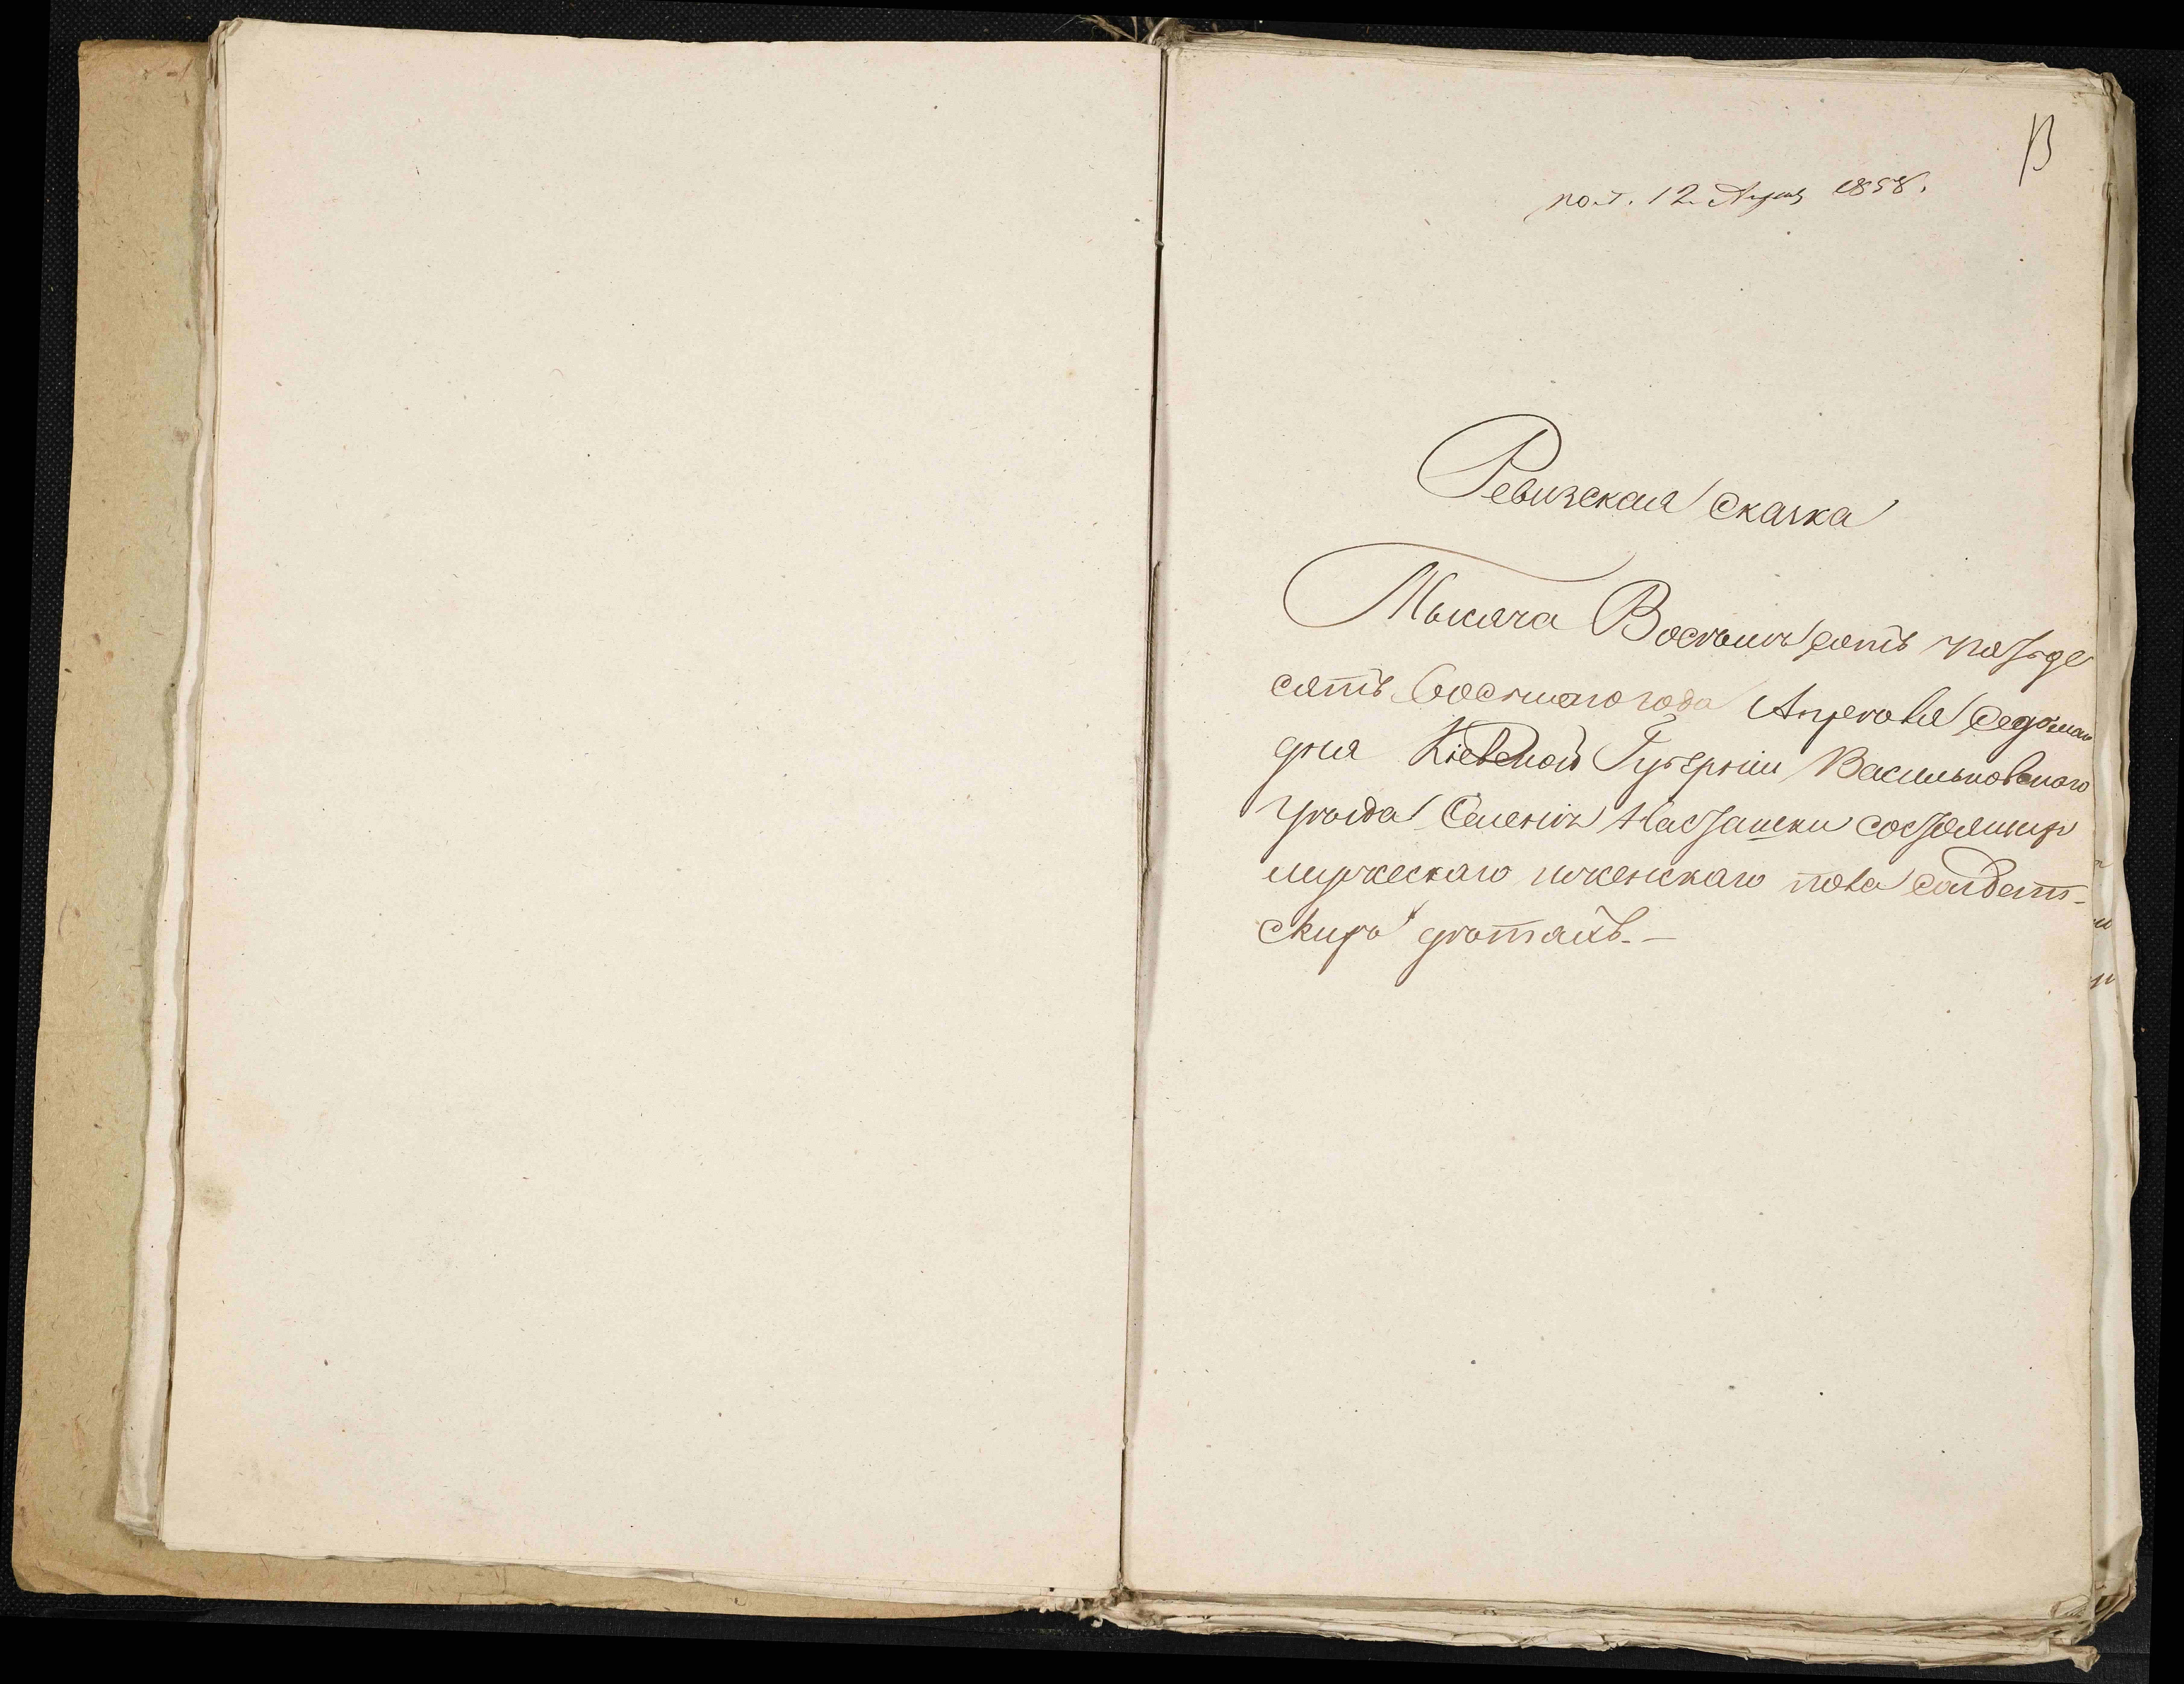 13
пол. 12 Апреля 1858.
Ревизская сказка
Тысяча Восемь сотъ пятьде
сятъ восьмого года Апреля седьмаго
дня Кіевской Губерніи Васильковского
уезда Селенія Насташки состоящихъ
мужескаго и женскаго пола солдат-
скихъ детяхъ.—